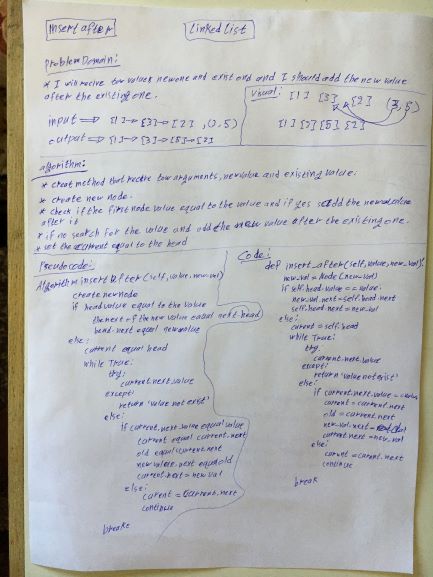 insert after
Linked list
Problem Domain:
* I will recive tow values new one and exist one and I should add the new value
after the existing one.
input => [1] -> [3] -> [2] , (3,5)
output => [1] -> [3] -> [5] -> [2]
Visual: [1] [3] [2] (3,5)
[1] [3] [5] [2]
algorithm:
* creat method that recive tow arguments, new value and existing value.
* create new node.
* check if the first node value equal to the value and if yes add the new value
after it
* if no search for the value and add the new value after the existing one.
* set the current equal to the head
Pseudocode:
Algorithm insert After (self, value, new_val)
create new node
if head value equal to the value
the next of the new value equal next head
head.next equal new value
else:
current equal head
while True:
try:
current.next.value
except:
return 'value not exist'
else:
if current.next.value equal value
current equal current.next
old equal current.next
new value.next equal old
current.next = new val
else:
curent = current.next
continue
breake
Code:
def insert_after(self, value, new_val):
new_val = Node(new_val)
if self.head.value == value:
new_val.next = self.head.next
self.head.next = new_val
else:
current = self.head
while True:
try:
current.next.value
except:
return 'value not exist'
else:
if current.next.value ==
current = current.next
old = current.next
new_val.next =
current.next = new_val
else:
current = current.next
continue
break